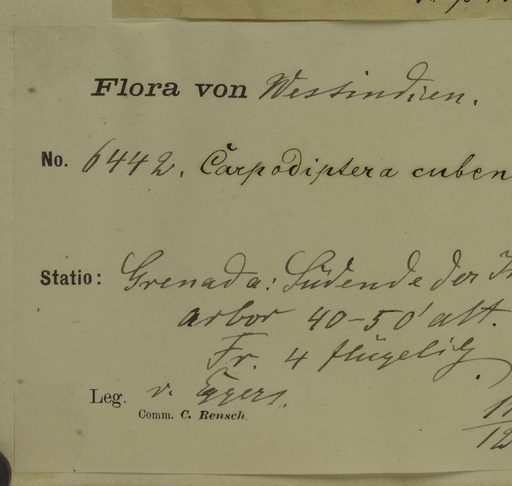 Flora von Westindien.
No. 6442. Carpodiptera cuben
Statio: Grenada: Südende der
arbor 40-50' alt.
Fr. 4 flügelig.
Leg. v. Eggers.
Comm. C. Rensch.